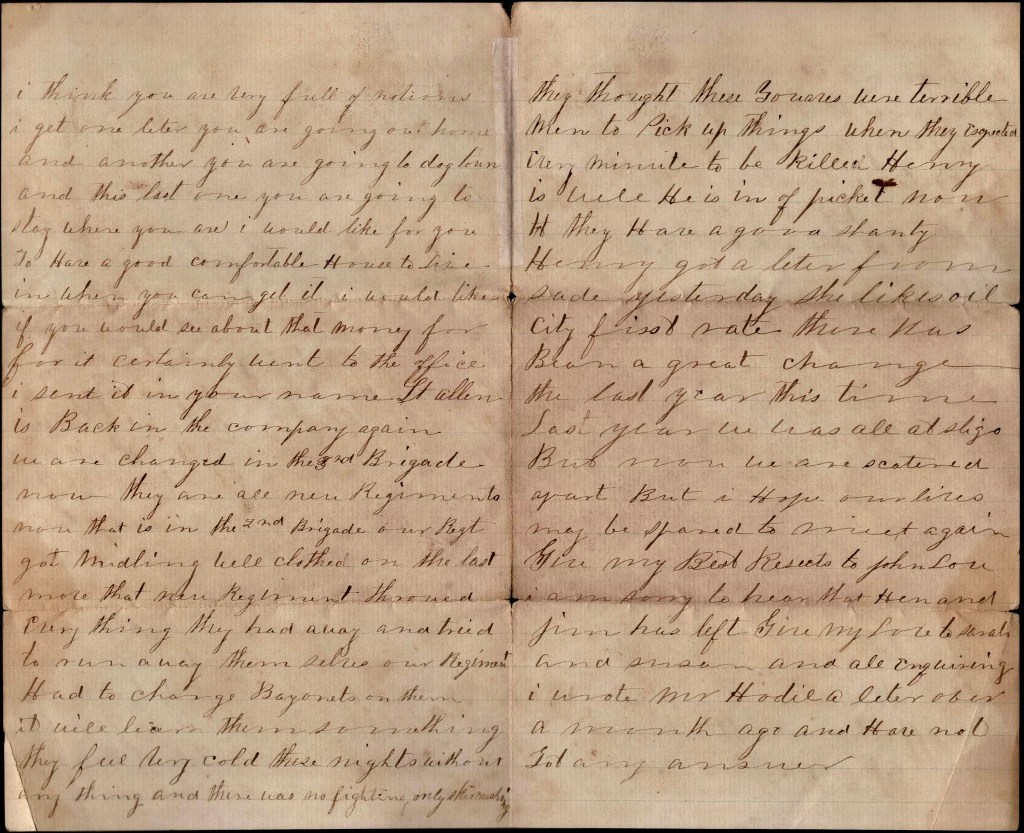 i think you are very full of notions
i get one leter you are going out home
and another you are going to dog town
and this last one you are going to
stay where you are i would like for you
To Have a good comfortable House to Live
in when you can get it i would like
if you would see about that money for
for it certainly went to the office
i sent it in your name Lt allen
is Back in the company again
we are changed in the 3rd Brigade
now they are all new Regiments
now that is in the 2nd Brigade our Regt
got Midling well clothed on the last
move that new Regiment throwed
Every thing they had away and tried
to run away them selves our Regiment
Had to charge Bayonets on them
it will learn them something
they feel very cold these nights without
any thing and there was no fighting only skirmishing
they thought these Zouaves were terrible
Men to Pick up things when they expected
Every minute to be killed Henry
is well He is in of picket now
H they Have a good shanty
Henry got a leter from
sade yesterday she likes oil
City first rate there Has
Bean a great change
the last year this time
Last year we was all at sligo
But now we are scatered
apart But i Hope our lives
may be spared to meet again
Give my Best Resects to John Low
i am sorry to hear that Hen and
jim has left Give My Love to sarah
and susan and all enquiring
i wrote Mr Hodil a leter over
a month ago and Have not
Got any answer